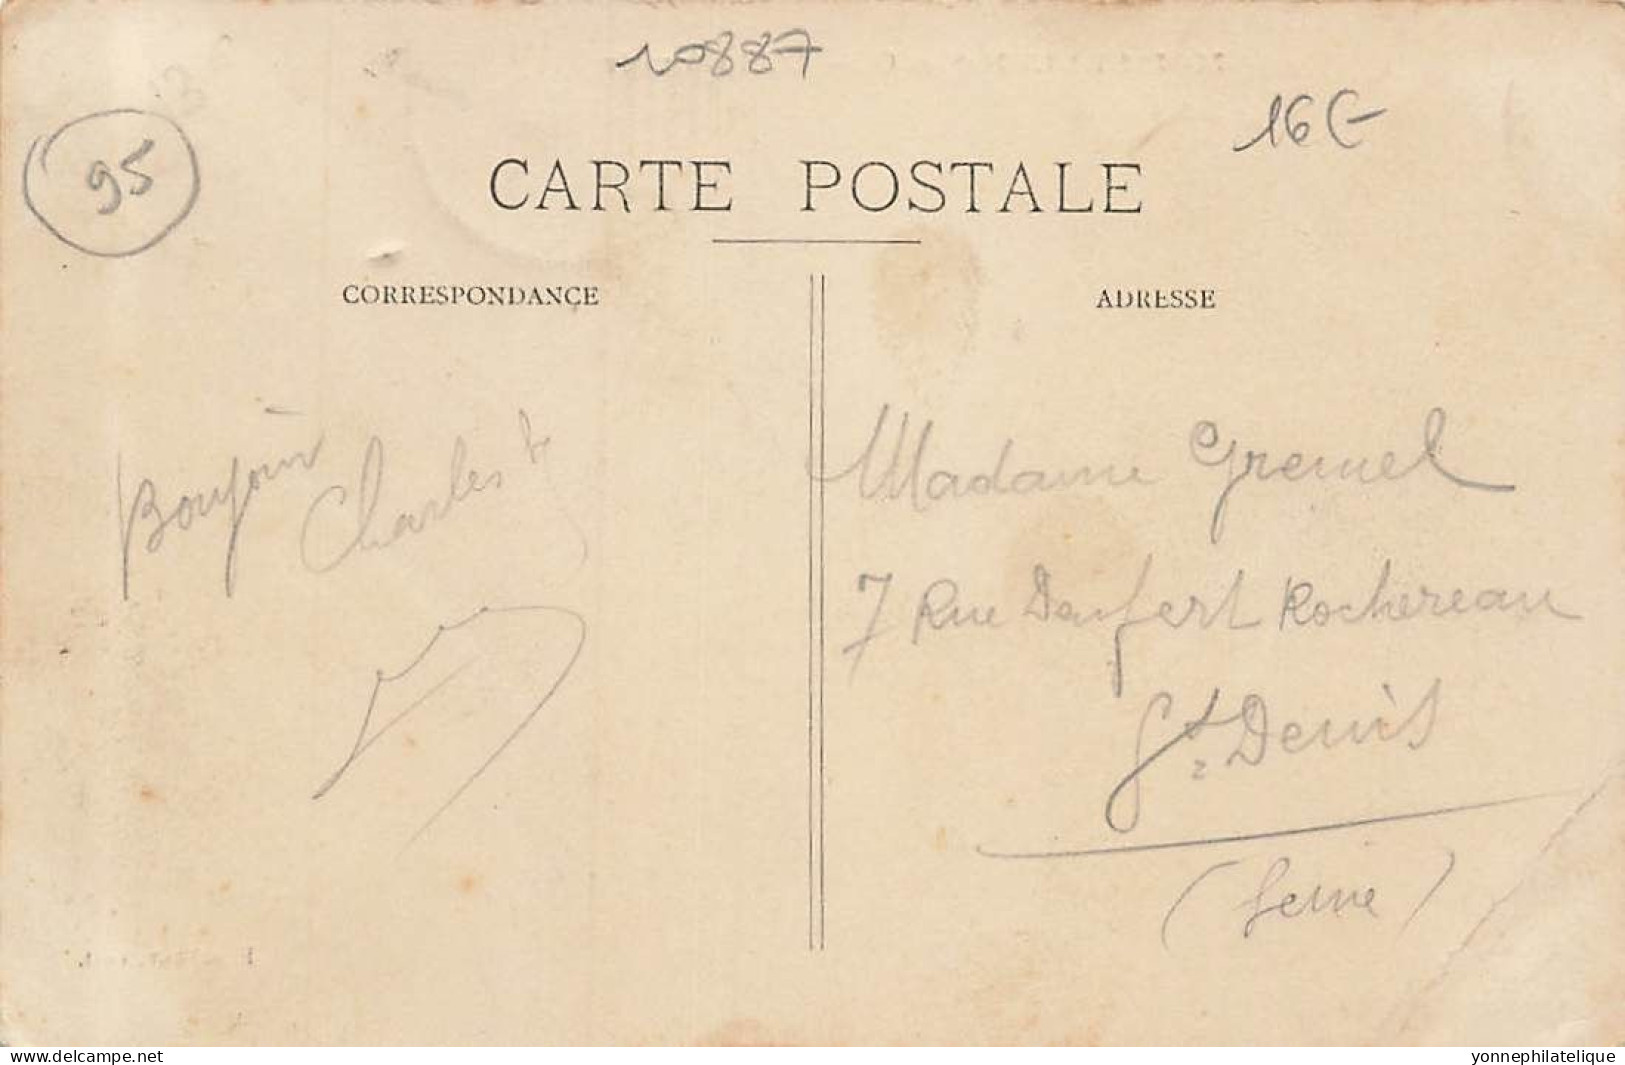 10887
16€
95
CARTE POSTALE
CORRESPONDANCE
ADRESSE
Bonjour
Charles
Madame Gremel
7 Rue Denfert Rochereau
St Denis
(Seine)
www.delcampe.net
yonnephilatelique